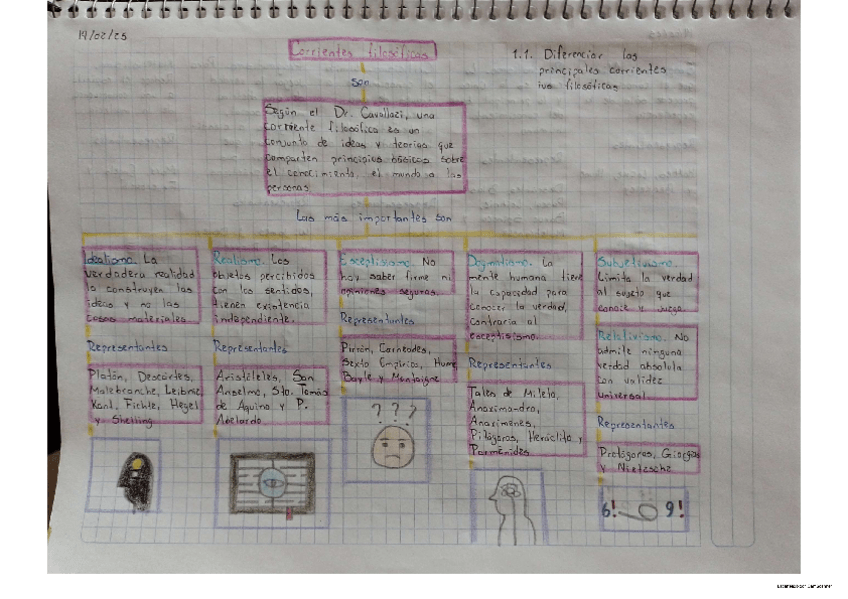 19/02/25
Corrientes filosóficas
1.1. Diferenciar las
principales corrientes
ivs filosóficas
son
Según el Dr. Cavallazi, una
corriente filosófica es un
conjunto de ideas y teorias que
comparten principios básicos sobre
el conocimiento, el mundo o las
personas
Las más importantes son
Idealismo. La
verdadera realidad
la construyen las
ideas y no las
cosas materiales
Representantes
Platón, Descartes,
Malebranche, Leibniz,
Kant, Fichte, Hegel
y Shelling
Realismo. Los
objetos percibidos
con los sentidos,
tienen existencia
independiente.
Representantes
Aristóteles, San
Anselmo, Sto. Tomás
de Aquino y P.
Abelardo
Esceptisismo. No
hay saber firme ni
opiniones seguras.
Representantes
Pirrón, Carneades,
Sexto Empírico, Hume,
Bayle y Montaigne
? ? ?
Dogmatismo. La
mente humana tiene
la capacidad para
conocer la verdad,
Contraria al
esceptisismo.
Representantes
Tales de Mileto,
Anaximandro,
Anaxímenes,
Pitágoras, Heráclito y
Parménides
Subjetivismo.
Limita la verdad
al sujeto que
conoce y juzga
Relativismo. No
admite ninguna
verdad absoluta
con validez
universal
Representantes
Protágoras, Giorgas
y Nietzsche
6! 9!